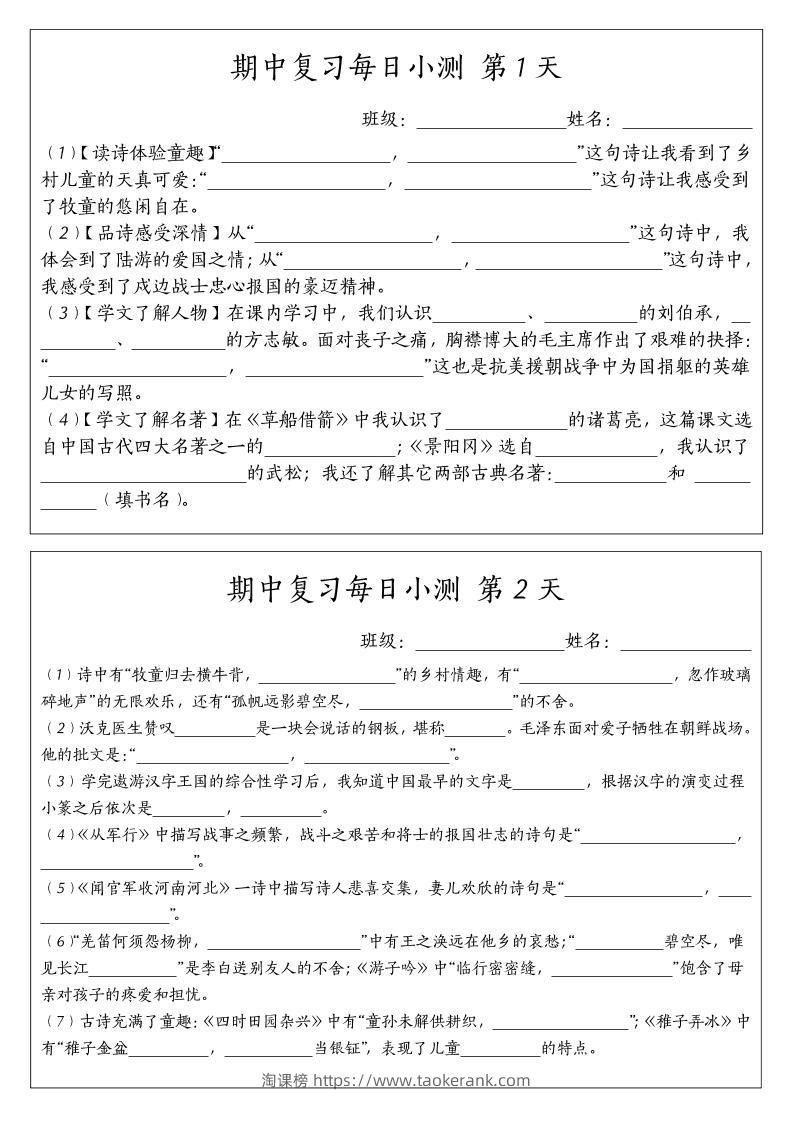 期中复习每日小测 第 1 天
班级：________________姓名：______________
（1）【读诗体验童趣】“__________________，__________________”这句诗让我看到了乡
村儿童的天真可爱：“___________________，____________________”这句诗让我感受到
了牧童的悠闲自在。
（2）【品诗感受深情】从“___________________，___________________”这句诗中，我
体会到了陆游的爱国之情；从“___________________，____________________”这句诗中，
我感受到了戍边战士忠心报国的豪迈精神。
（3）【学文了解人物】在课内学习中，我们认识__________、__________的刘伯承，__
________、__________的方志敏。面对丧子之痛，胸襟博大的毛主席作出了艰难的抉择：
“___________________，___________________”这也是抗美援朝战争中为国捐躯的英雄
儿女的写照。
（4）【学文了解名著】在《草船借箭》中我认识了_____________的诸葛亮，这篇课文选
自中国古代四大名著之一的______________；《景阳冈》选自_____________，我认识了
______________________的武松；我还了解其它两部古典名著：____________和 ______
______（填书名）。
期中复习每日小测 第 2 天
班级：________________姓名：______________
（1）诗中有“牧童归去横牛背，_________________”的乡村情趣，有“___________________，忽作玻璃
碎地声”的无限欢乐，还有“孤帆远影碧空尽，___________________”的不舍。
（2）沃克医生赞叹__________是一块会说话的钢板，堪称_______。毛泽东面对爱子牺牲在朝鲜战场。
他的批文是：“___________________，__________________”。
（3）学完遨游汉字王国的综合性学习后，我知道中国最早的文字是_________，根据汉字的演变过程
小篆之后依次是_________，__________。
（4）《从军行》中描写战事之频繁，战斗之艰苦和将士的报国壮志的诗句是“___________________，
___________________”。
（5）《闻官军收河南河北》一诗中描写诗人悲喜交集，妻儿欢欣的诗句是“_________________，____
________________”。
（6）“羌笛何须怨杨柳，___________________”中有王之涣远在他乡的哀愁；“___________碧空尽，唯
见长江___________”是李白送别友人的不舍；《游子吟》中“临行密密缝，_______________”饱含了母
亲对孩子的疼爱和担忧。
（7）古诗充满了童趣：《四时田园杂兴》中有“童孙未解供耕织，_________________”；《稚子弄冰》中
有“稚子金盆__________，___________当银钲”，表现了儿童__________的特点。
淘课榜 https://www.taokerank.com